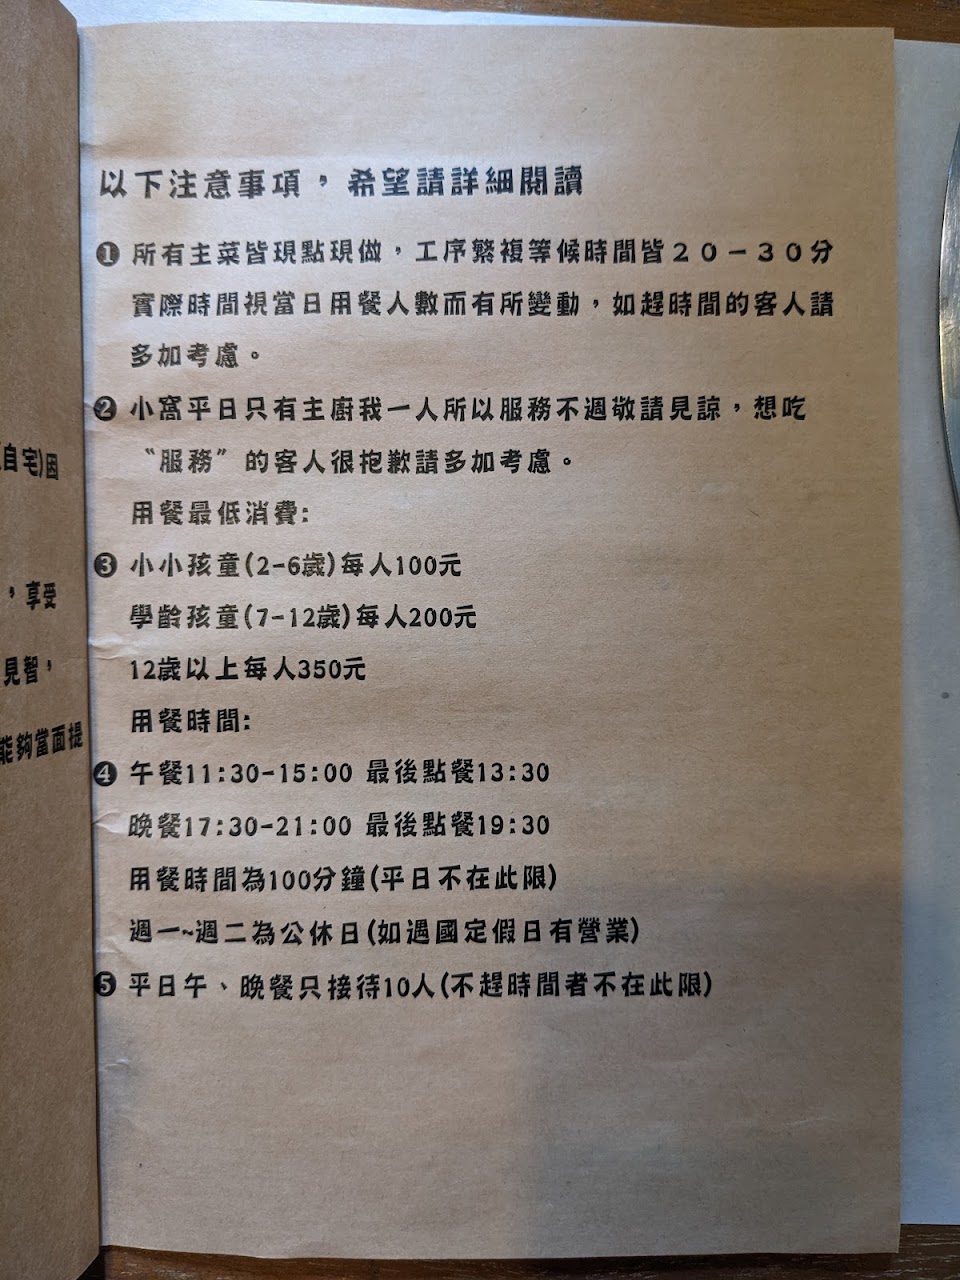 (自宅)因
，享受
見智，
能夠當面提
以下注意事項，希望請詳細閱讀
❶ 所有主菜皆現點現做，工序繁複等候時間皆２０－３０分
實際時間視當日用餐人數而有所變動，如趕時間的客人請
多加考慮。
❷ 小窩平日只有主廚我一人所以服務不週敬請見諒，想吃
〝服務〞的客人很抱歉請多加考慮。
用餐最低消費:
❸ 小小孩童(2-6歲)每人100元
學齡孩童(7-12歲)每人200元
12歲以上每人350元
用餐時間:
❹ 午餐11:30-15:00 最後點餐13:30
晚餐17:30-21:00 最後點餐19:30
用餐時間為100分鐘(平日不在此限)
週一~週二為公休日(如遇國定假日有營業)
❺ 平日午、晚餐只接待10人(不趕時間者不在此限)